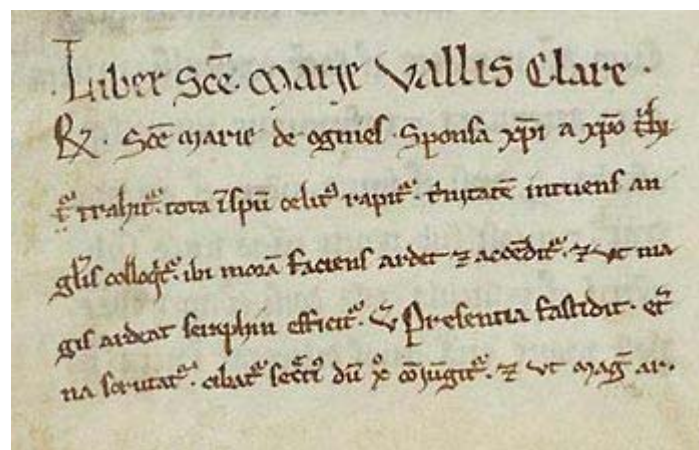 . Liber Sce. Marie Vallis Clare .
℞. Sce marie de ognies. Sponsa xp̄i a xp̄o
trahit᷑. tota ı̄ sp̄u celitꝰ rapit᷑. t̓nitatē intuens an
gl̓is colloq̓t᷑. ibi morā faciens ardet ⁊ accēdit᷑. ⁊ ut ma
gis ardeat seraphin efficit᷑. ℣ Presentia fastidit. et̓
na scrutat᷑. cibat᷑ dū x̊ cōiūgit᷑. ⁊ ut mag̅ ar.